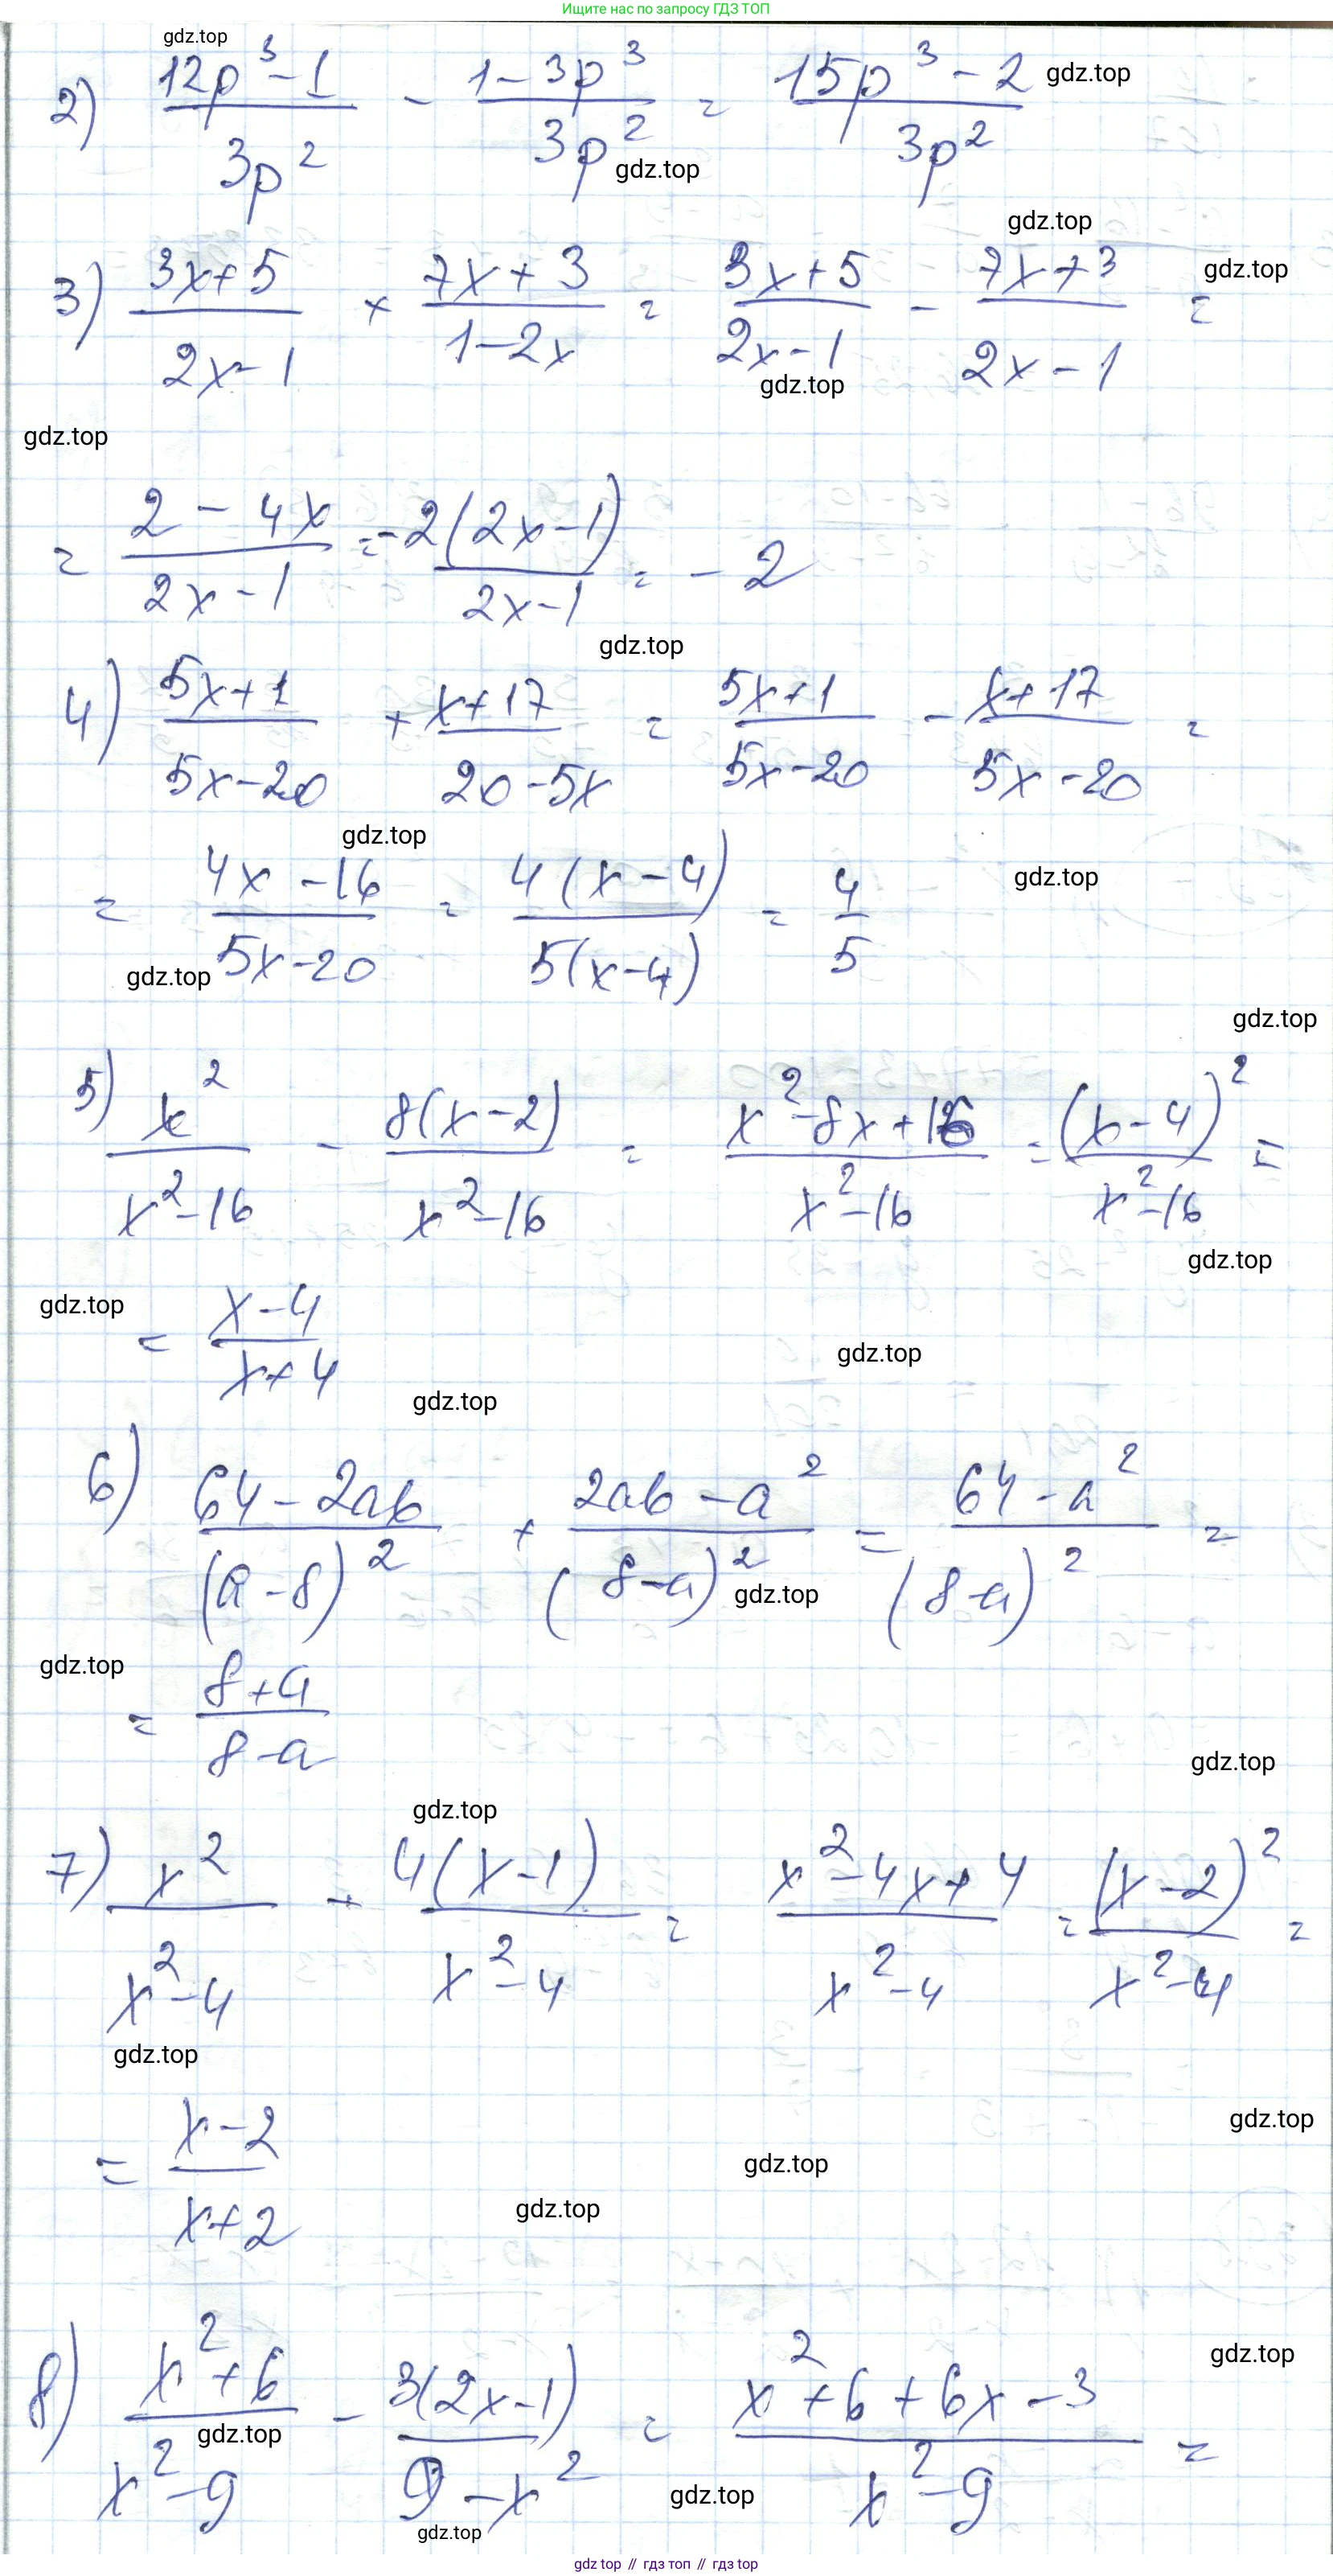 Ищите нас по запросу ГДЗ ТОП
gdz.top
2) (12p³-1)/(3p²) - (1-3p³)/(3p²) = (15p³-2)/(3p²) gdz.top
gdz.top
gdz.top
3) (3x+5)/(2x-1) + (7x+3)/(1-2x) = (3x+5)/(2x-1) - (7x+3)/(2x-1) = gdz.top
gdz.top
gdz.top
= (2-4x)/(2x-1) = -2(2x-1)/(2x-1) = -2
gdz.top
4) (5x+1)/(5x-20) + (x+17)/(20-5x) = (5x+1)/(5x-20) - (x+17)/(5x-20) =
gdz.top
= (4x-16)/(5x-20) = 4(x-4)/5(x-4) = 4/5 gdz.top
gdz.top
gdz.top
5) x²/(x²-16) - 8(x-2)/(x²-16) = (x²-8x+16)/(x²-16) = (x-4)²/(x²-16) =
gdz.top
gdz.top
= (x-4)/(x+4)
gdz.top
gdz.top
6) (64-2ab)/(a-8)² + (2ab-a²)/(8-a)² = (64-a²)/(8-a)² =
gdz.top
gdz.top
= (8+a)/(8-a)
gdz.top
gdz.top
7) x²/(x²-4) - 4(x-1)/(x²-4) = (x²-4x+4)/(x²-4) = (x-2)²/(x²-4) =
gdz.top
= (x-2)/(x+2)
gdz.top
gdz.top
gdz.top
8) (x²+6)/(x²-9) - 3(2x-1)/(9-x²) = (x²+6+6x-3)/(x²-9) =
gdz.top
gdz.top
gdz.top
gdz.top
gdz top // гдз топ // гдз top